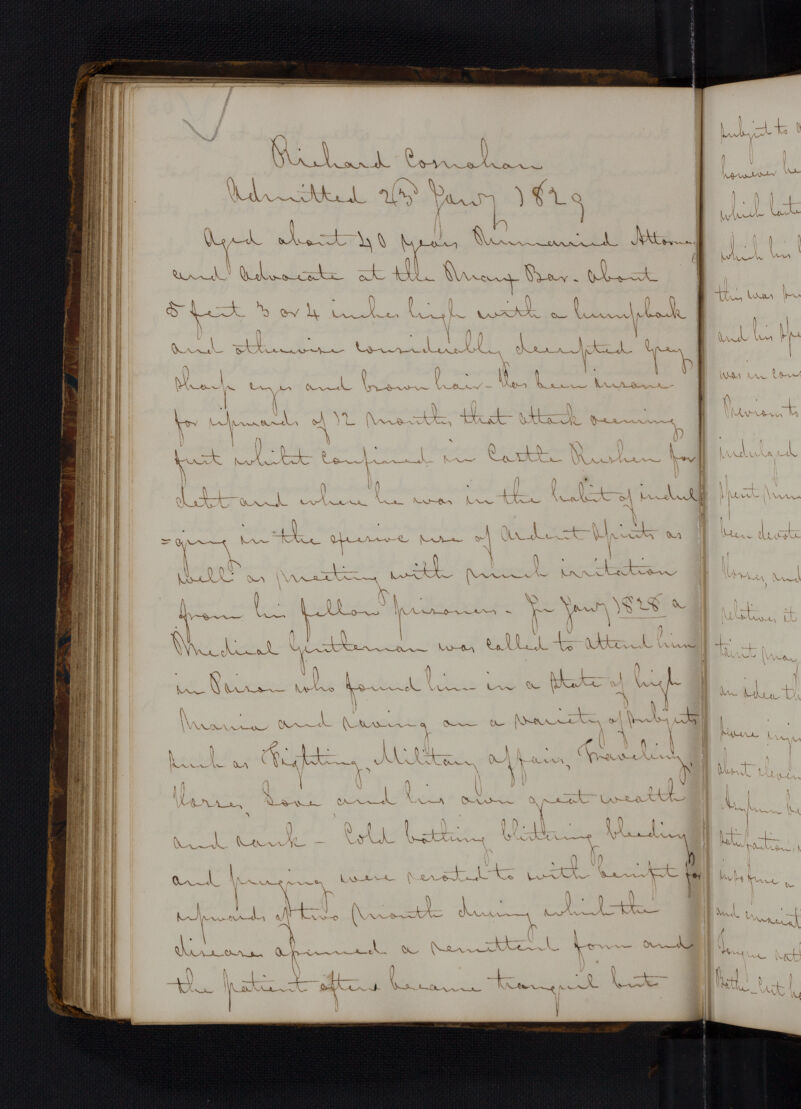 Richard Cosnahan
Admitted 23d Jany 1829
Aged about 40 years Unmarried Attorney
and Advocate at the Manx Bar. about
5 feet 3 or 4 inches high with a humpback
and otherwise considerably decripted Grey
sharp eyes and brown hair - Has been insane
for upwards of 12 months, that attack occuring
first whilst confined in Castle Rushen for
debt and where he was in the habit of indul
=ging in the excessive use of ardent spirits as
well as meeting with much irritation
from his fellow prisoners - In Jany 1828 a
Medical Gentleman was called to attend him
in Prison who found him in a state of high
Mania and raving on a variety of subjects
such as Fighting, Military affairs, Traveling,
Horses, Love and his own great wealth
and rank - Cold bathing blistering bleeding
and purging were resorted to with benifit for
upwards of two month during which the
disease assumed a remittent form and
the patient often became tranquil but
subject to
however he
which
which his
this was
and his
was in
Previous to
indulged
spent
been
Horses, and
relatives it
taint may
an idea
severe
about eleven
Asylum he
and
Tongue
Baths - but